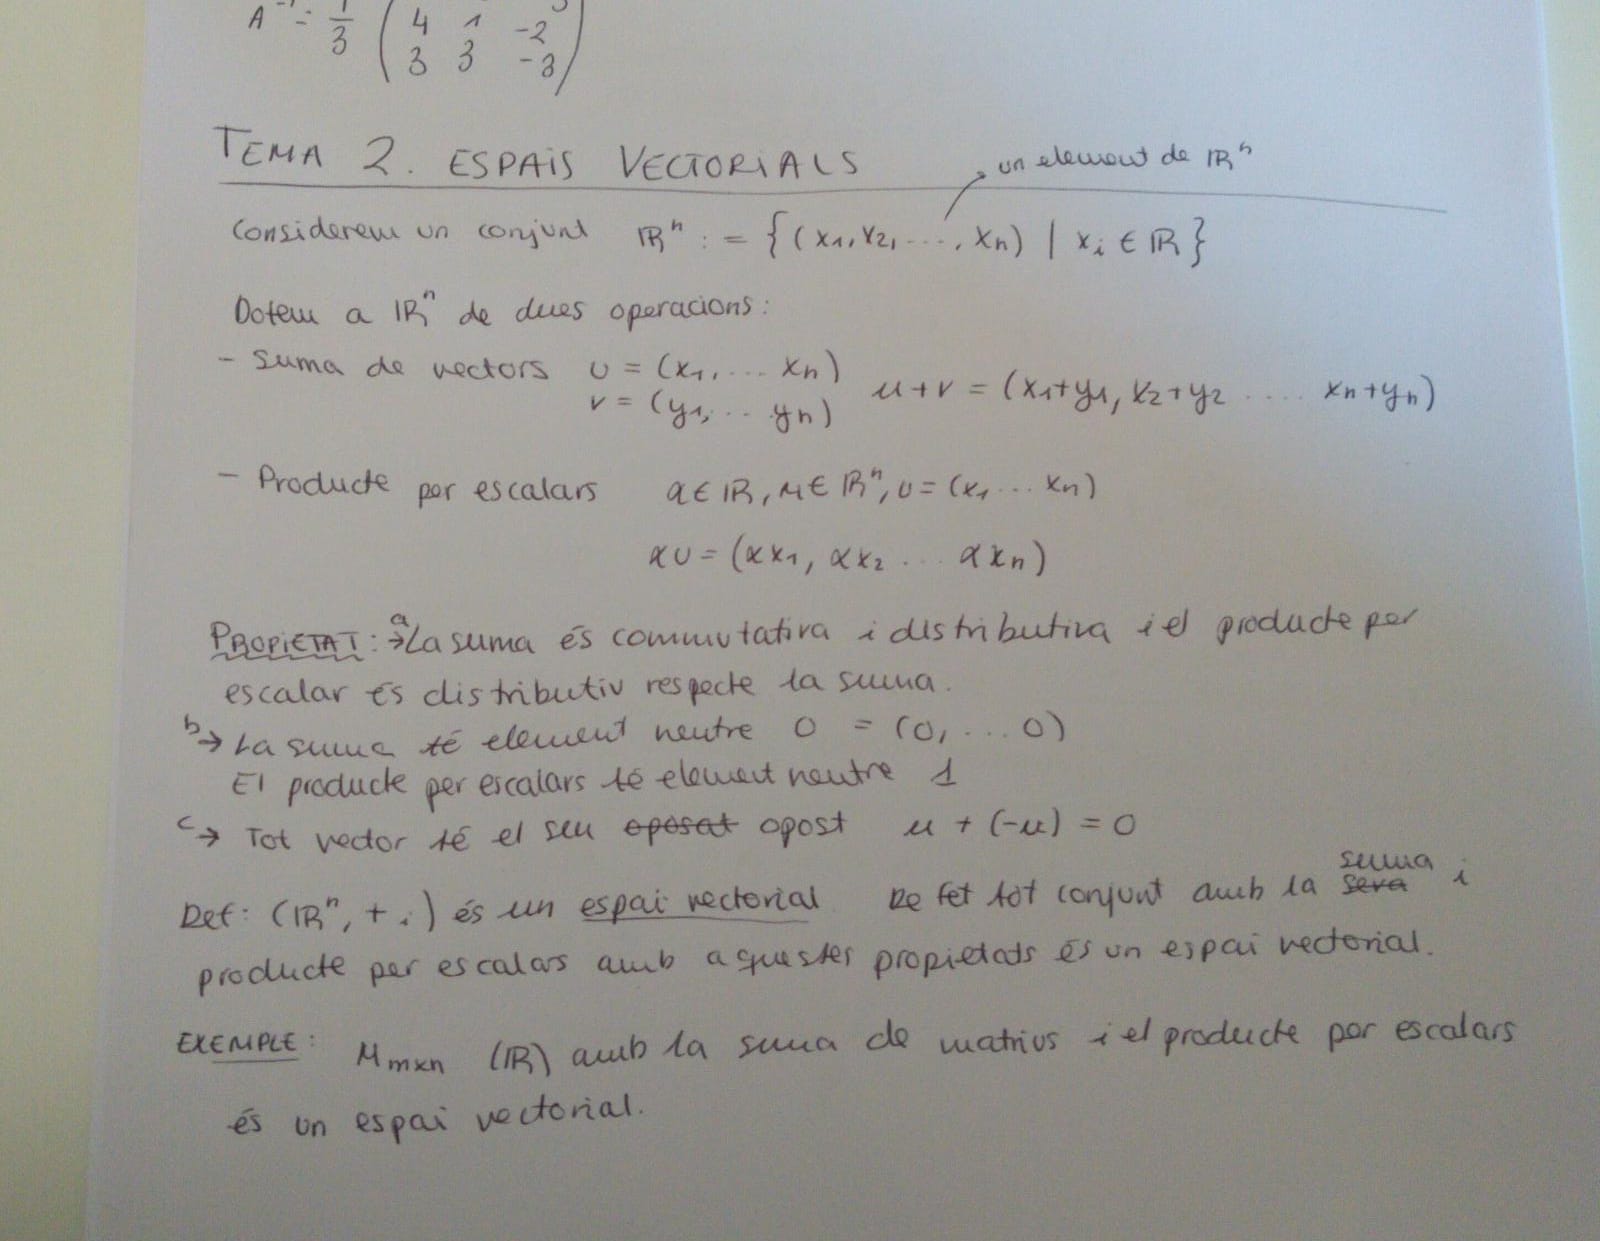 A⁻¹ = 1/3 ( 4 1 -2
3 3 -3 )
TEMA 2. ESPAIS VECTORIALS
un element de ℝⁿ
Considerem un conjunt ℝⁿ := {(x₁, x₂, ..., xₙ) | xᵢ ∈ ℝ}
Dotem a ℝⁿ de dues operacions:
- Suma de vectors u = (x₁, ... xₙ)
v = (y₁, ... yₙ) u+v = (x₁+y₁, x₂+y₂ .... xₙ+yₙ)
- Producte per escalars α ∈ ℝ, u ∈ ℝⁿ, u = (x₁ ... xₙ)
αu = (αx₁, αx₂ ... αxₙ)
PROPIETAT: a → La suma és commutativa i distributiva i el producte per
escalar és distributiu respecte la suma.
b → La suma té element neutre 0 = (0, ... 0)
El producte per escalars té element neutre 1
c → Tot vector té el seu oposat opost u + (-u) = 0
Def: (ℝⁿ, + ·) és un espai vectorial. De fet tot conjunt amb la seva suma i
producte per escalars amb aquestes propietats és un espai vectorial.
EXEMPLE: Mₘₓₙ (ℝ) amb la suma de matrius i el producte per escalars
és un espai vectorial.